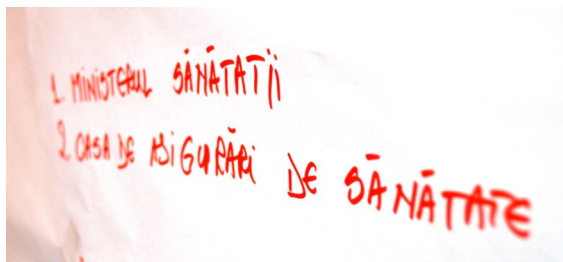 1. MINISTERUL SĂNĂTATII
2. CASA DE ASIGURĂRI DE SĂNĂTATE